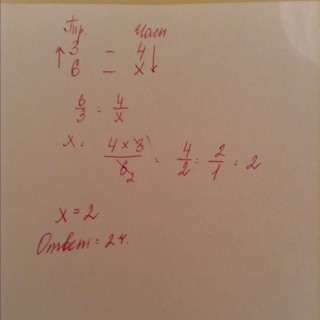 Тр. Часы
↑ 3 – 4 ↓
6 – x
6/3 = 4/x
x = 4 × 3/6 2 = 4/2 = 2/1 = 2
x = 2
Ответ = 2 ч.